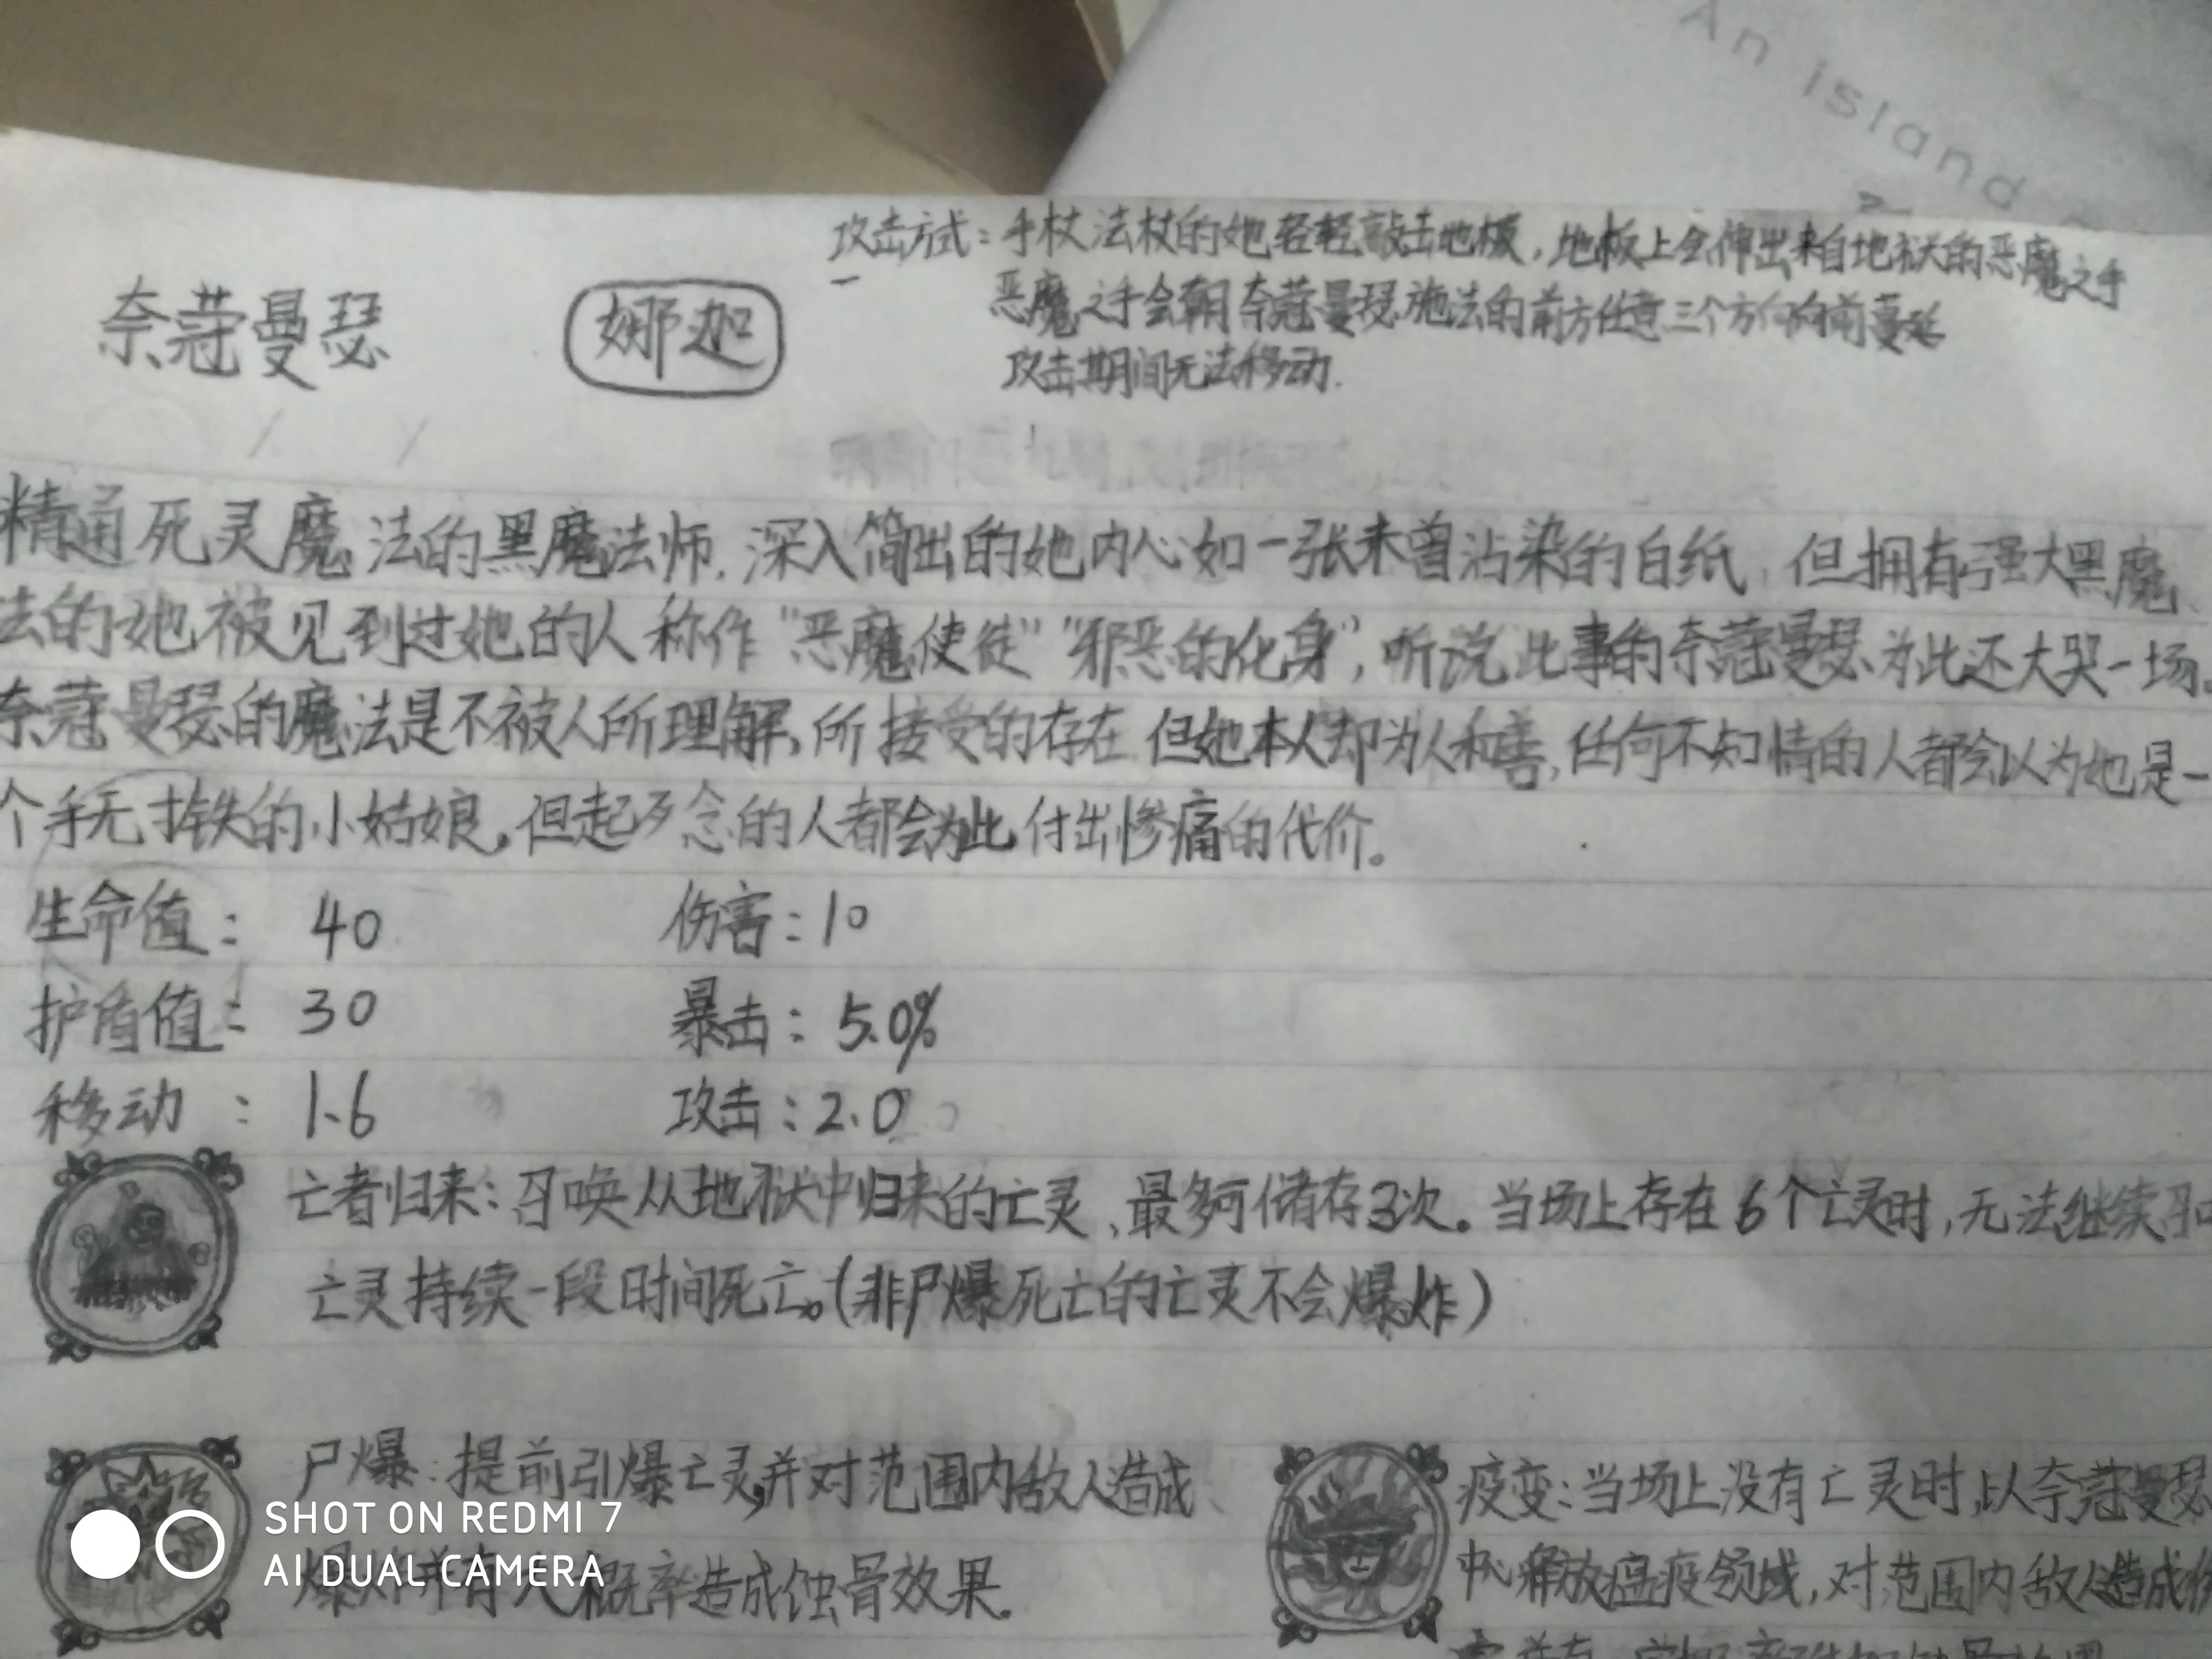 An island
攻击方式：手杖法杖的她轻轻敲击地板，地板上会伸出来自地狱的恶魔之手
恶魔之手会朝奈蔻曼瑟施法的前方任意三个方向向前蔓延
攻击期间无法移动.
奈蔻曼瑟
娜迦
精通死灵魔法的黑魔法师，深入简出的她内心如一张未曾沾染的白纸，但拥有强大黑魔
法的她被见到过她的人称作“恶魔使徒”“邪恶的化身”，听说此事的奈蔻曼瑟为此还大哭一场。
奈蔻曼瑟的魔法是不被人所理解，所接受的存在 但她本人却为人和善，任何不知情的人都会以为她是一
个手无寸铁的小姑娘。但起歹念的人都会为此付出惨痛的代价。
生命值： 40 伤害：10
护盾值： 30 暴击：5.0%
移动 ： 1.6 攻击：2.0
亡者归来：召唤从地狱中归来的亡灵，最多可储存3次。当场上存在6个亡灵时，无法继续召
亡灵持续一段时间死亡。（非尸爆死亡的亡灵不会爆炸）
尸爆：提前引爆亡灵，并对范围内敌人造成
概率造成蚀骨效果。
疫变：当场上没有亡灵时，以奈蔻曼瑟
中心释放瘟疫领域，对范围内敌人造成
SHOT ON REDMI 7
AI DUAL CAMERA